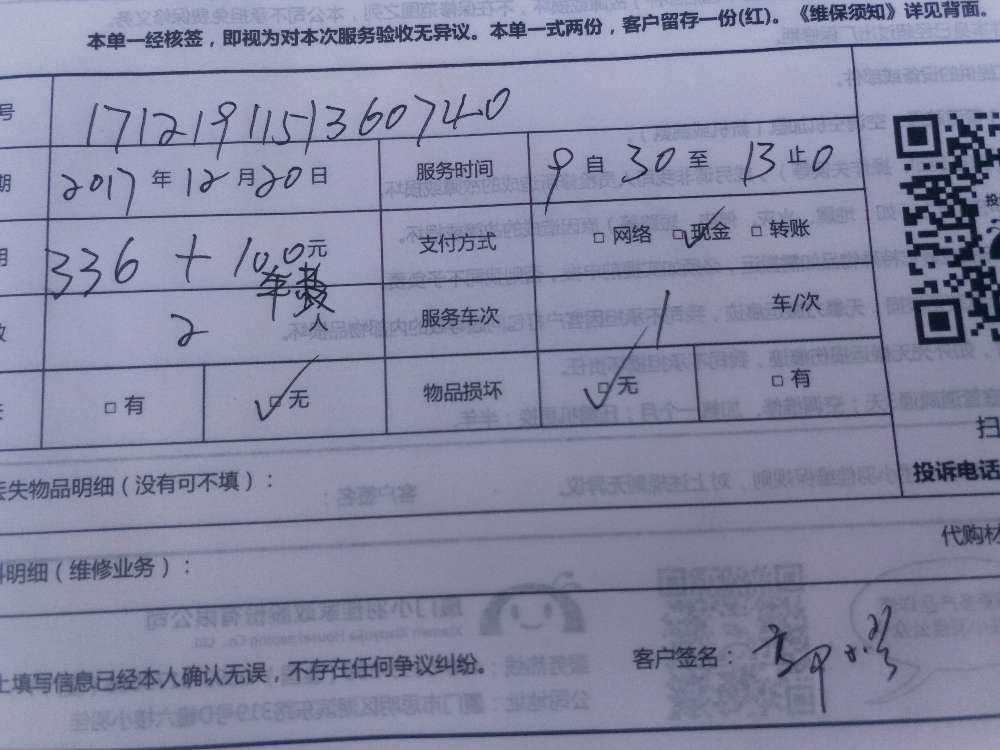 本单一经核签，即视为对本次服务验收无异议。本单一式两份，客户留存一份(红)。《维保须知》详见背面。
号 1712191151360740
期 2017 年 12 月 20 日 服务时间 9 自 30 至 13 止 0
336 + 100元 支付方式 □ 网络 ☑ 现金 □ 转账
车费
2 人 服务车次 1 车/次
□ 有 ☑ 无 物品损坏 ☑ 无 □ 有
扫
丢失物品明细（没有可不填）： 投诉电话
代购材
料明细（维修业务）：
上填写信息已经本人确认无误，不存在任何争议纠纷。 客户签名：